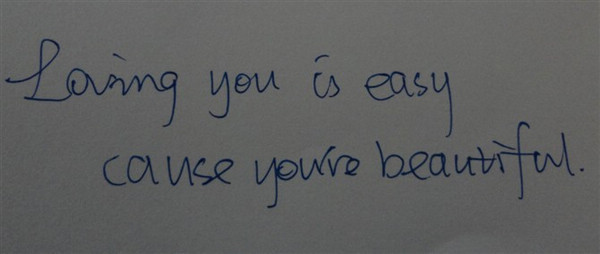 Loving you is easy
cause you're beautiful.